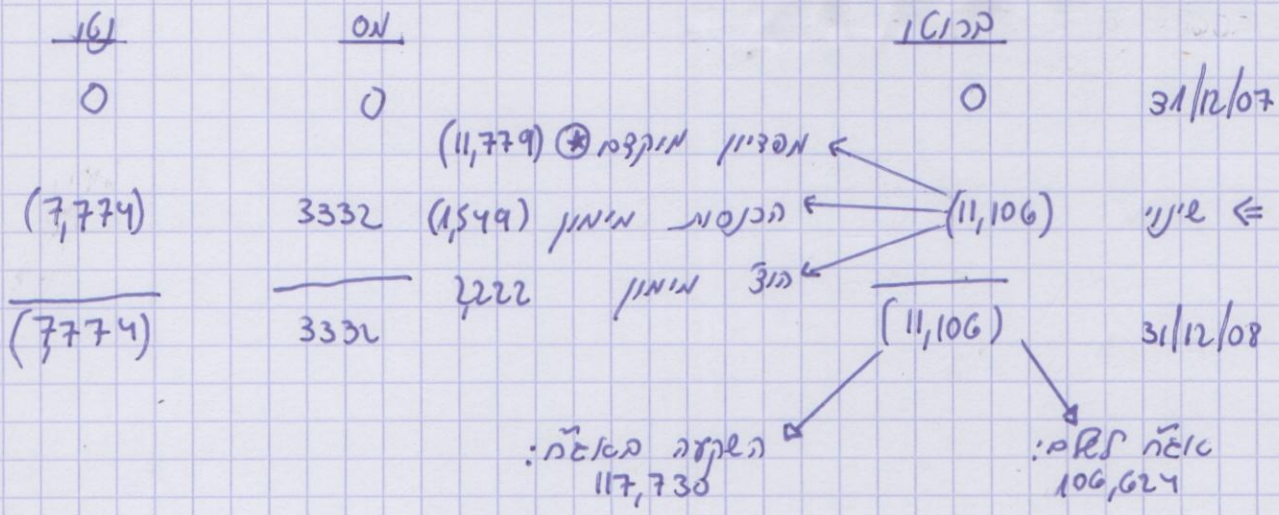 ברוטו מס נטו
31/12/07 0 0 0
מפדיון מוקדם * (11,779)
<= שינוי (11,106) הכנסות מימון (1,549) 3332 (7,774)
הוצ' מימון 2,222
31/12/08 (11,106) 3332 (7,774)
אג"ח לשלם: השקעה באג"ח:
106,624 117,730